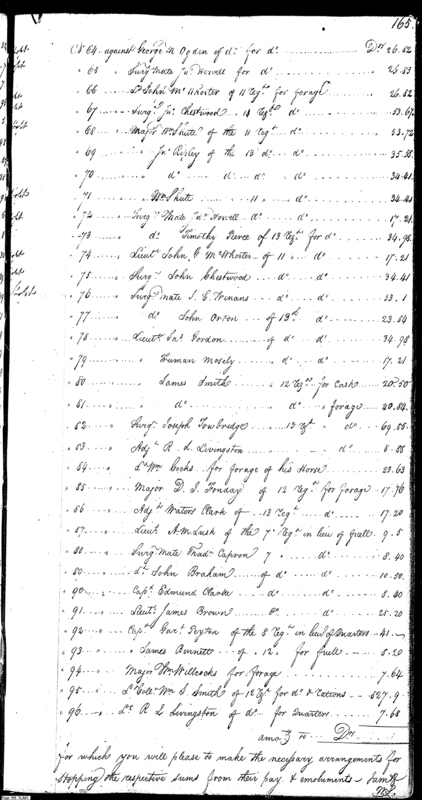 165
No 64 against George M Ogden of do for do Drs 26.52
" 65 " Surgn Mate Jno Howell for do 26.53
" 66 " Lt John McWhorter of 11 Regt for forage 26.52
" 67 " Surgn Jno Chestwood 11 Regt do 53.67
" 68 Major Wm Shute of the 11 Regt do 53.72
" 69 " Jno Ripley of the 13 do do 35.28
" 70 " do do do do 34.41
" 71 " Wm Shute " 11 " do 34.41
" 72 " Surgn Mate Jno Howell do do 17.21
" 73 do Timothy Pierce of 13 Regt for do 34.98
" 74 Lieut John G McWhorter of 11 do 17.21
" 75 Surgn John Chestwood do do 34.41
" 76 Surgn mate I. C Winans do do 33.1
" 77 do John Orton of 13th do 23.54
" 78 Lieut Jas Gordon of do do 34.98
" 79 " Truman Mosely do do 17.21
" 80 James Smith " 12 Regt for Cash 20.50
" 81 " do do " forage 40.84
" 82 Surgn Joseph Trowbridge 13 Regt " do 69.55
" 83 Adjt R. L. Livingston " do 8.88
" 84 Lt Wm Cocks for forage of his Horse 23.63
" 85 Major D. S. Fonday of 12 Regt for forage 17.76
" 86 Adjt Waters Clark of 13 Regt do 17.20
" 87 Lieut A. M Lusk of the 7 Regt in lieu of fuell 9.5
" 88 Surgn Mate Fredk Capron 7 " do 8.40
" 89 Lt John Braham of do do 10.50
" 90 Capt Edmund Clarke do do 8.40
" 91 Lieut James Brown 8th do 25.20
" 92 Capt Gart Peyton of the 8 Regt in lieu of Quarters 41 —
" 93 " James Bennett of 12 for fuell 8.20
" 94 Major Wm Willcocks for forage 7.64
" 95 Lt Colo Wm S. Smith of 12 Regt for do & rations 527.9
" 96 Lt R L Livingston of do for Quarters 7.68
amog to Drs
for which you will please to make the necessary arrangements for
stopping the respective sums from their pay & emoluments —